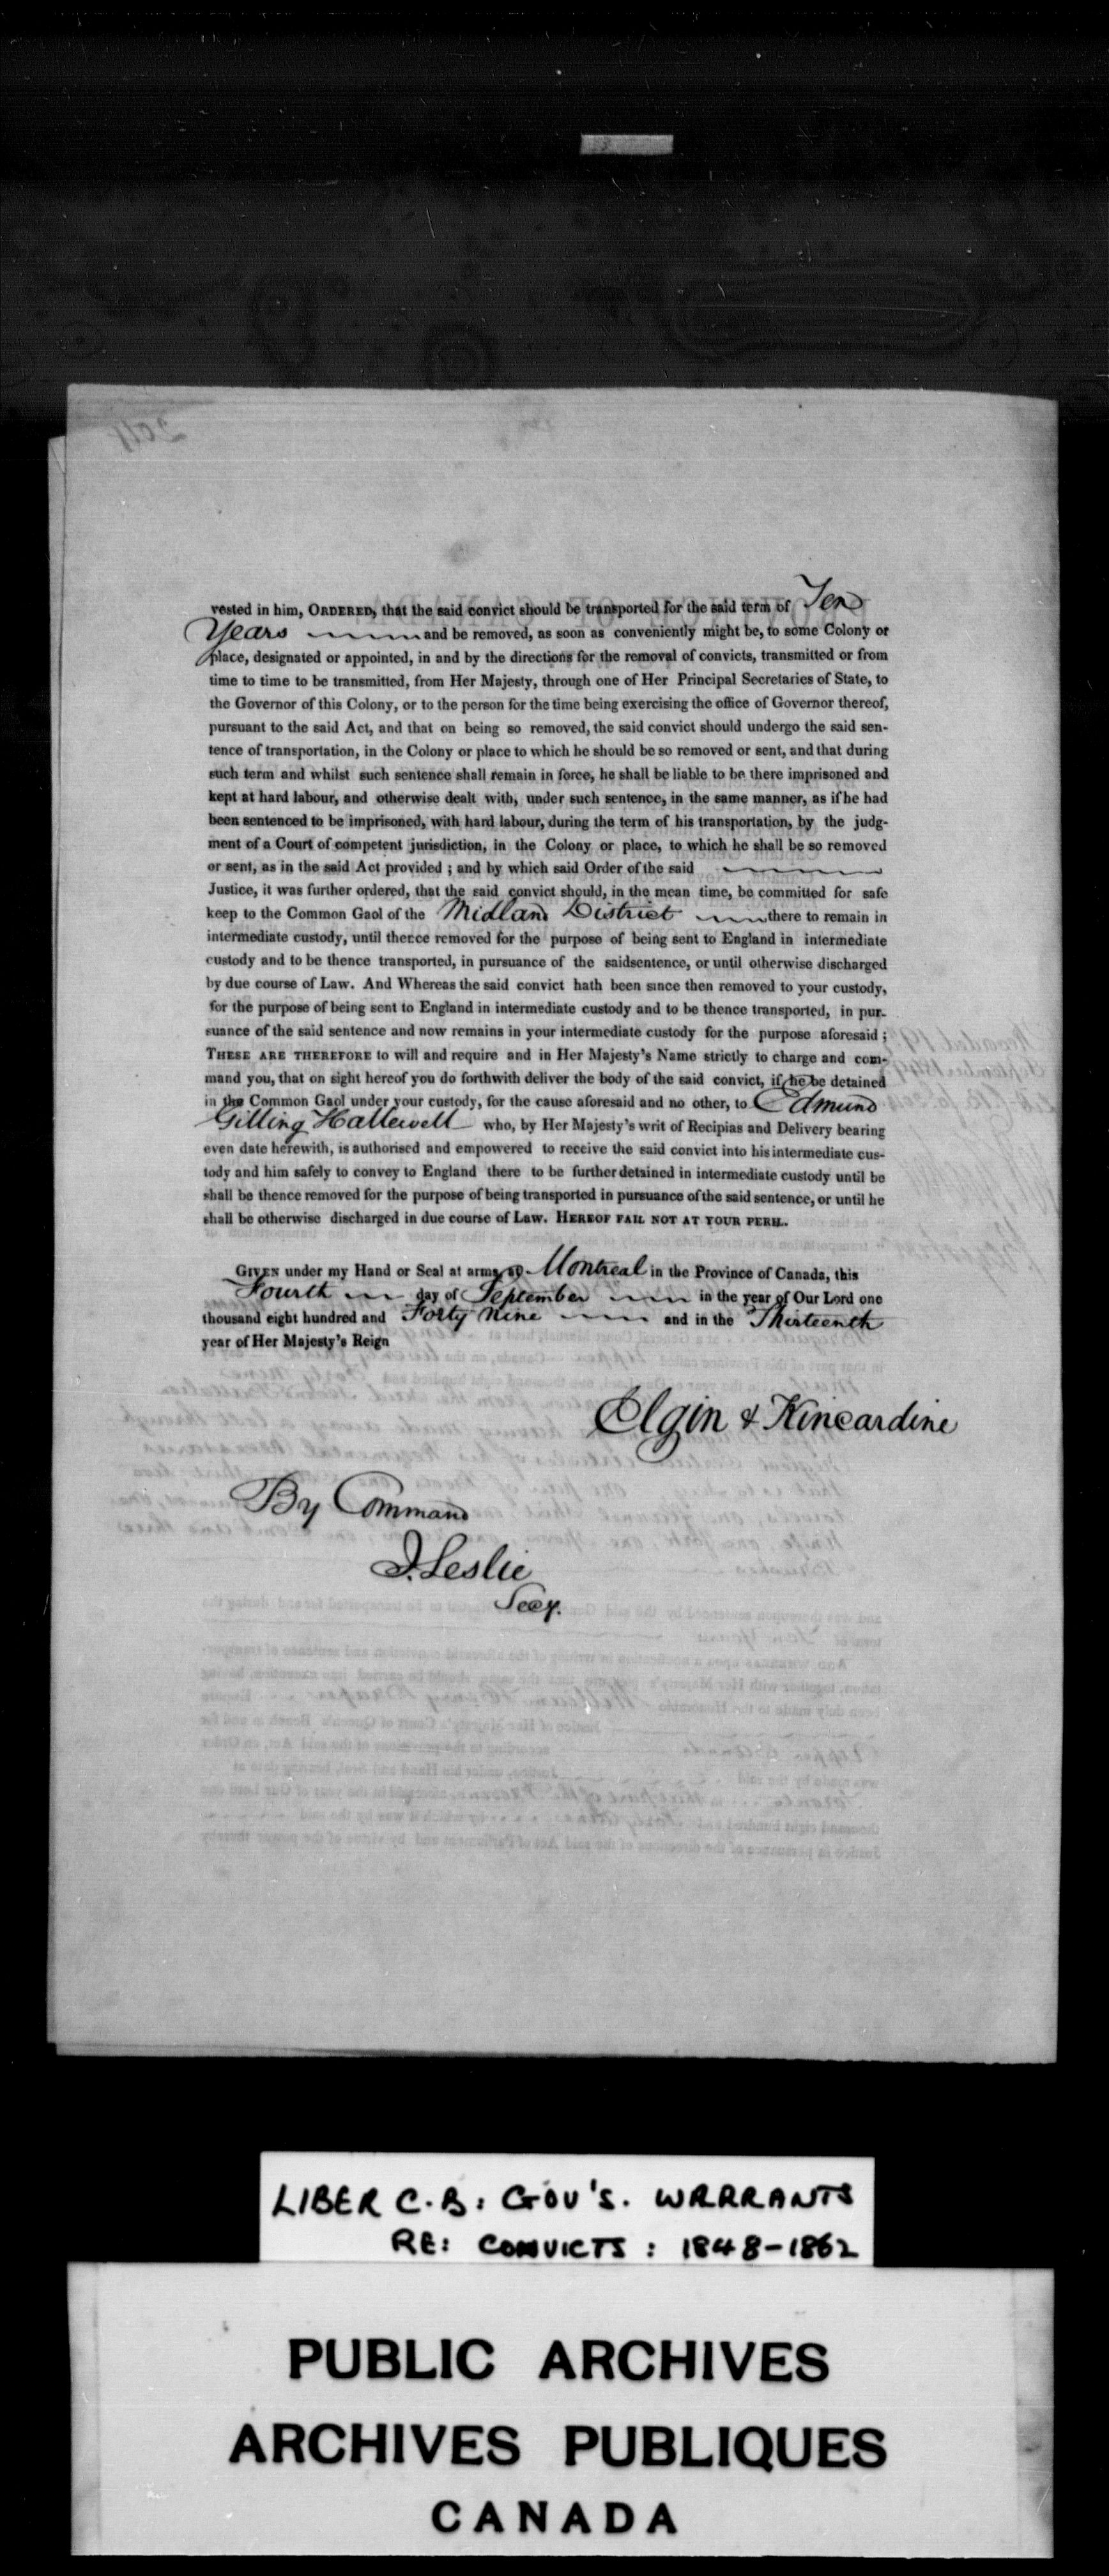 vested in him, ORDERED, that the said convict should be transported for the said term of Ten
Years and be removed, as soon as conveniently might be, to some Colony or
place, designated or appointed, in and by the directions for the removal of convicts, transmitted or from
time to time to be transmitted, from Her Majesty, through one of Her Principal Secretaries of State, to
the Governor of this Colony, or to the person for the time being exercising the office of Governor thereof,
pursuant to the said Act, and that on being so removed, the said convict should undergo the said sen-
tence of transportation, in the Colony or place to which he should be so removed or sent, and that during
such term and whilst such sentence shall remain in force, he shall be liable to be there imprisoned and
kept at hard labour, and otherwise dealt with, under such sentence, in the same manner, as if he had
been sentenced to be imprisoned, with hard labour, during the term of his transportation, by the judg-
ment of a Court of competent jurisdiction, in the Colony or place, to which he shall be so removed
or sent, as in the said Act provided ; and by which said Order of the said
Justice, it was further ordered, that the said convict should, in the mean time, be committed for safe
keep to the Common Gaol of the Midland District there to remain in
intermediate custody, until thence removed for the purpose of being sent to England in intermediate
custody and to be thence transported, in pursuance of the saidsentence, or until otherwise discharged
by due course of Law. And Whereas the said convict hath been since then removed to your custody,
for the purpose of being sent to England in intermediate custody and to be thence transported, in pur-
suance of the said sentence and now remains in your intermediate custody for the purpose aforesaid ;
THESE ARE THEREFORE to will and require and in Her Majesty's Name strictly to charge and com-
mand you, that on sight hereof you do forthwith deliver the body of the said convict, if he be detained
in the Common Gaol under your custody, for the cause aforesaid and no other, to Edmund
Gilling Hallewell who, by Her Majesty's writ of Recipias and Delivery bearing
even date herewith, is authorised and empowered to receive the said convict into his intermediate cus-
tody and him safely to convey to England there to be further detained in intermediate custody until he
shall be thence removed for the purpose of being transported in pursuance of the said sentence, or until he
shall be otherwise discharged in due course of Law. HEREOF FAIL NOT AT YOUR PERIL.
GIVEN under my Hand or Seal at arms, at Montreal in the Province of Canada, this
Fourth day of September in the year of Our Lord one
thousand eight hundred and Forty Nine and in the Thirteenth
year of Her Majesty's Reign
Elgin & Kincardine
By Command
J. Leslie
Secy.
LIBER C.B: GOV'S. WARRANTS
RE: CONVICTS : 1848-1862
PUBLIC ARCHIVES
ARCHIVES PUBLIQUES
CANADA